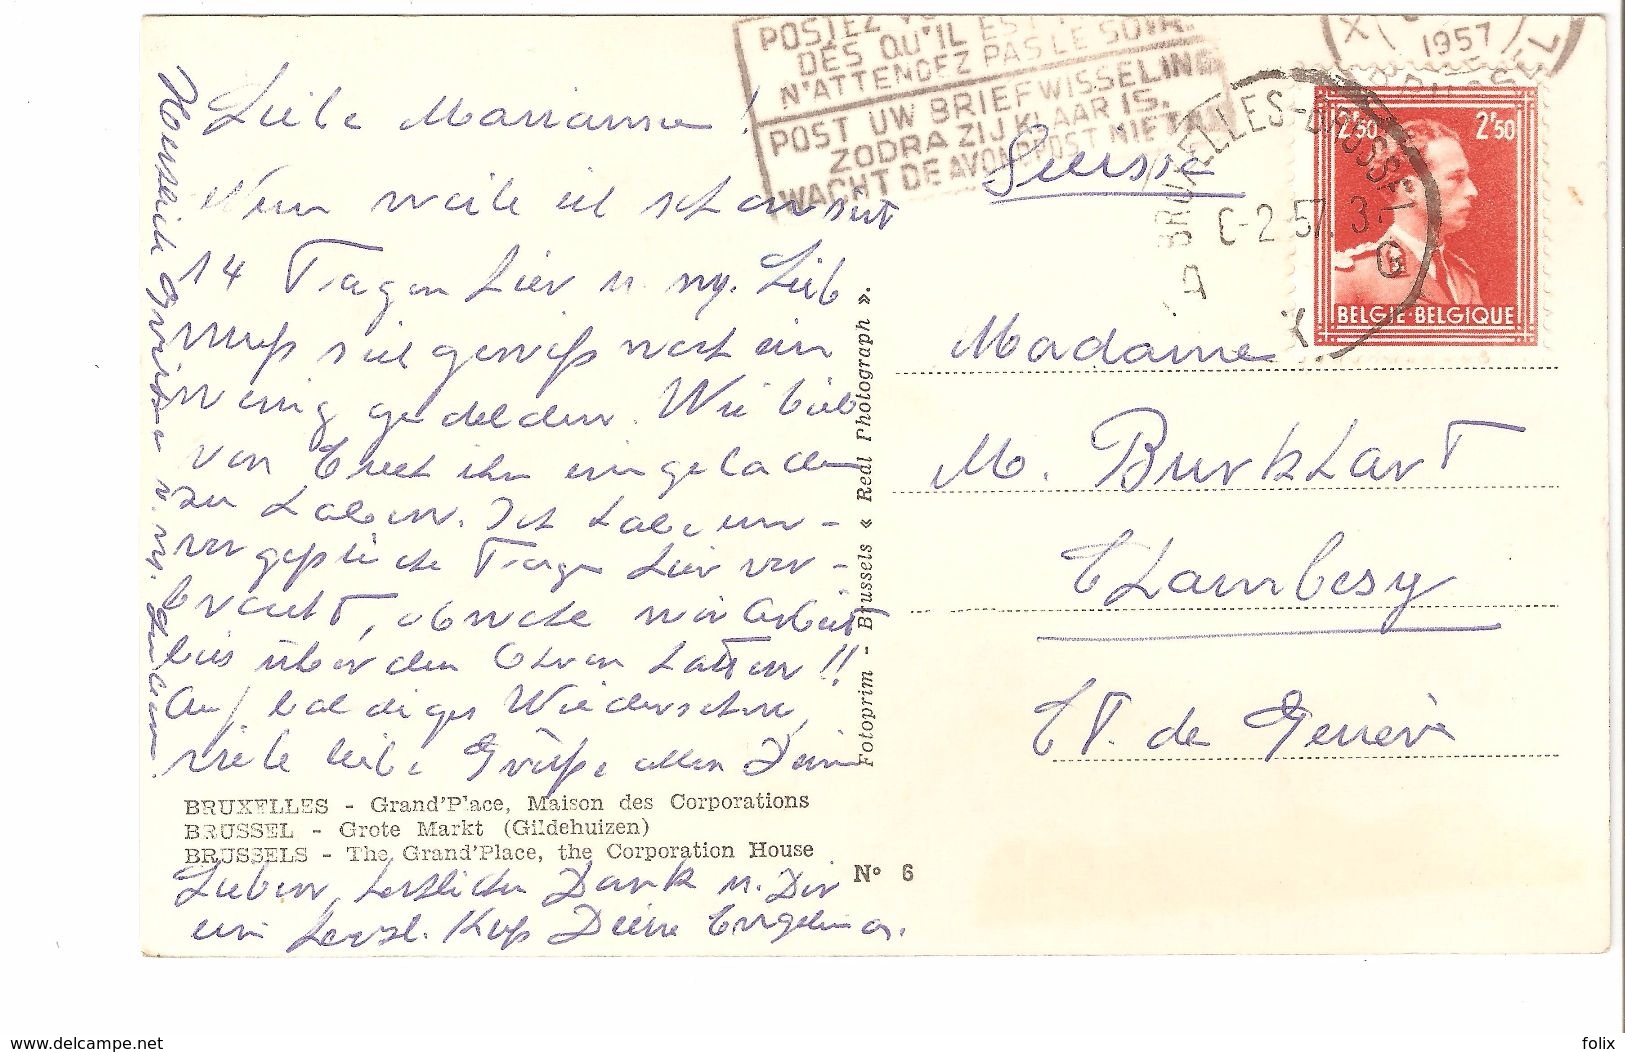 POSTEZ
DÈS QU'IL EST
N'ATTENDEZ PAS LE SOIR.
POST UW BRIEFWISSELING
ZODRA ZIJ KLAAR IS.
WACHT DE AVONDPOST NIET
1957
BRUXELLES-BRUSSEL
6-2 57
2'50 2'50
BELGIE·BELGIQUE
Suisse
Madame
M. Burkhart
Chambesy
Ct. de Genève
Liebe Marianne!
Nun weile ich schon seit
14 Tagen hier u. my. Lieb
muss sich gewiss noch ein
wenig gedulden. Wie lieb
von Euch ihn eingeladen
zu haben. Ich habe un-
vergessliche Tage hier ver-
bracht, obwohl wir Arbeit
bis über den Ohren hatten!!
Auf baldiges Wiedersehen,
viele liebe Grüsse allen Deine
Fotoprim - Brussels « Real Photograph ».
BRUXELLES - Grand'Place, Maison des Corporations
BRUSSEL - Grote Markt (Gildehuizen)
BRUSSELS - The Grand'Place, the Corporation House
N° 6
herzlichen Dank u. Dir
ein herzl. Kuss Deine
delcampe.net
folix